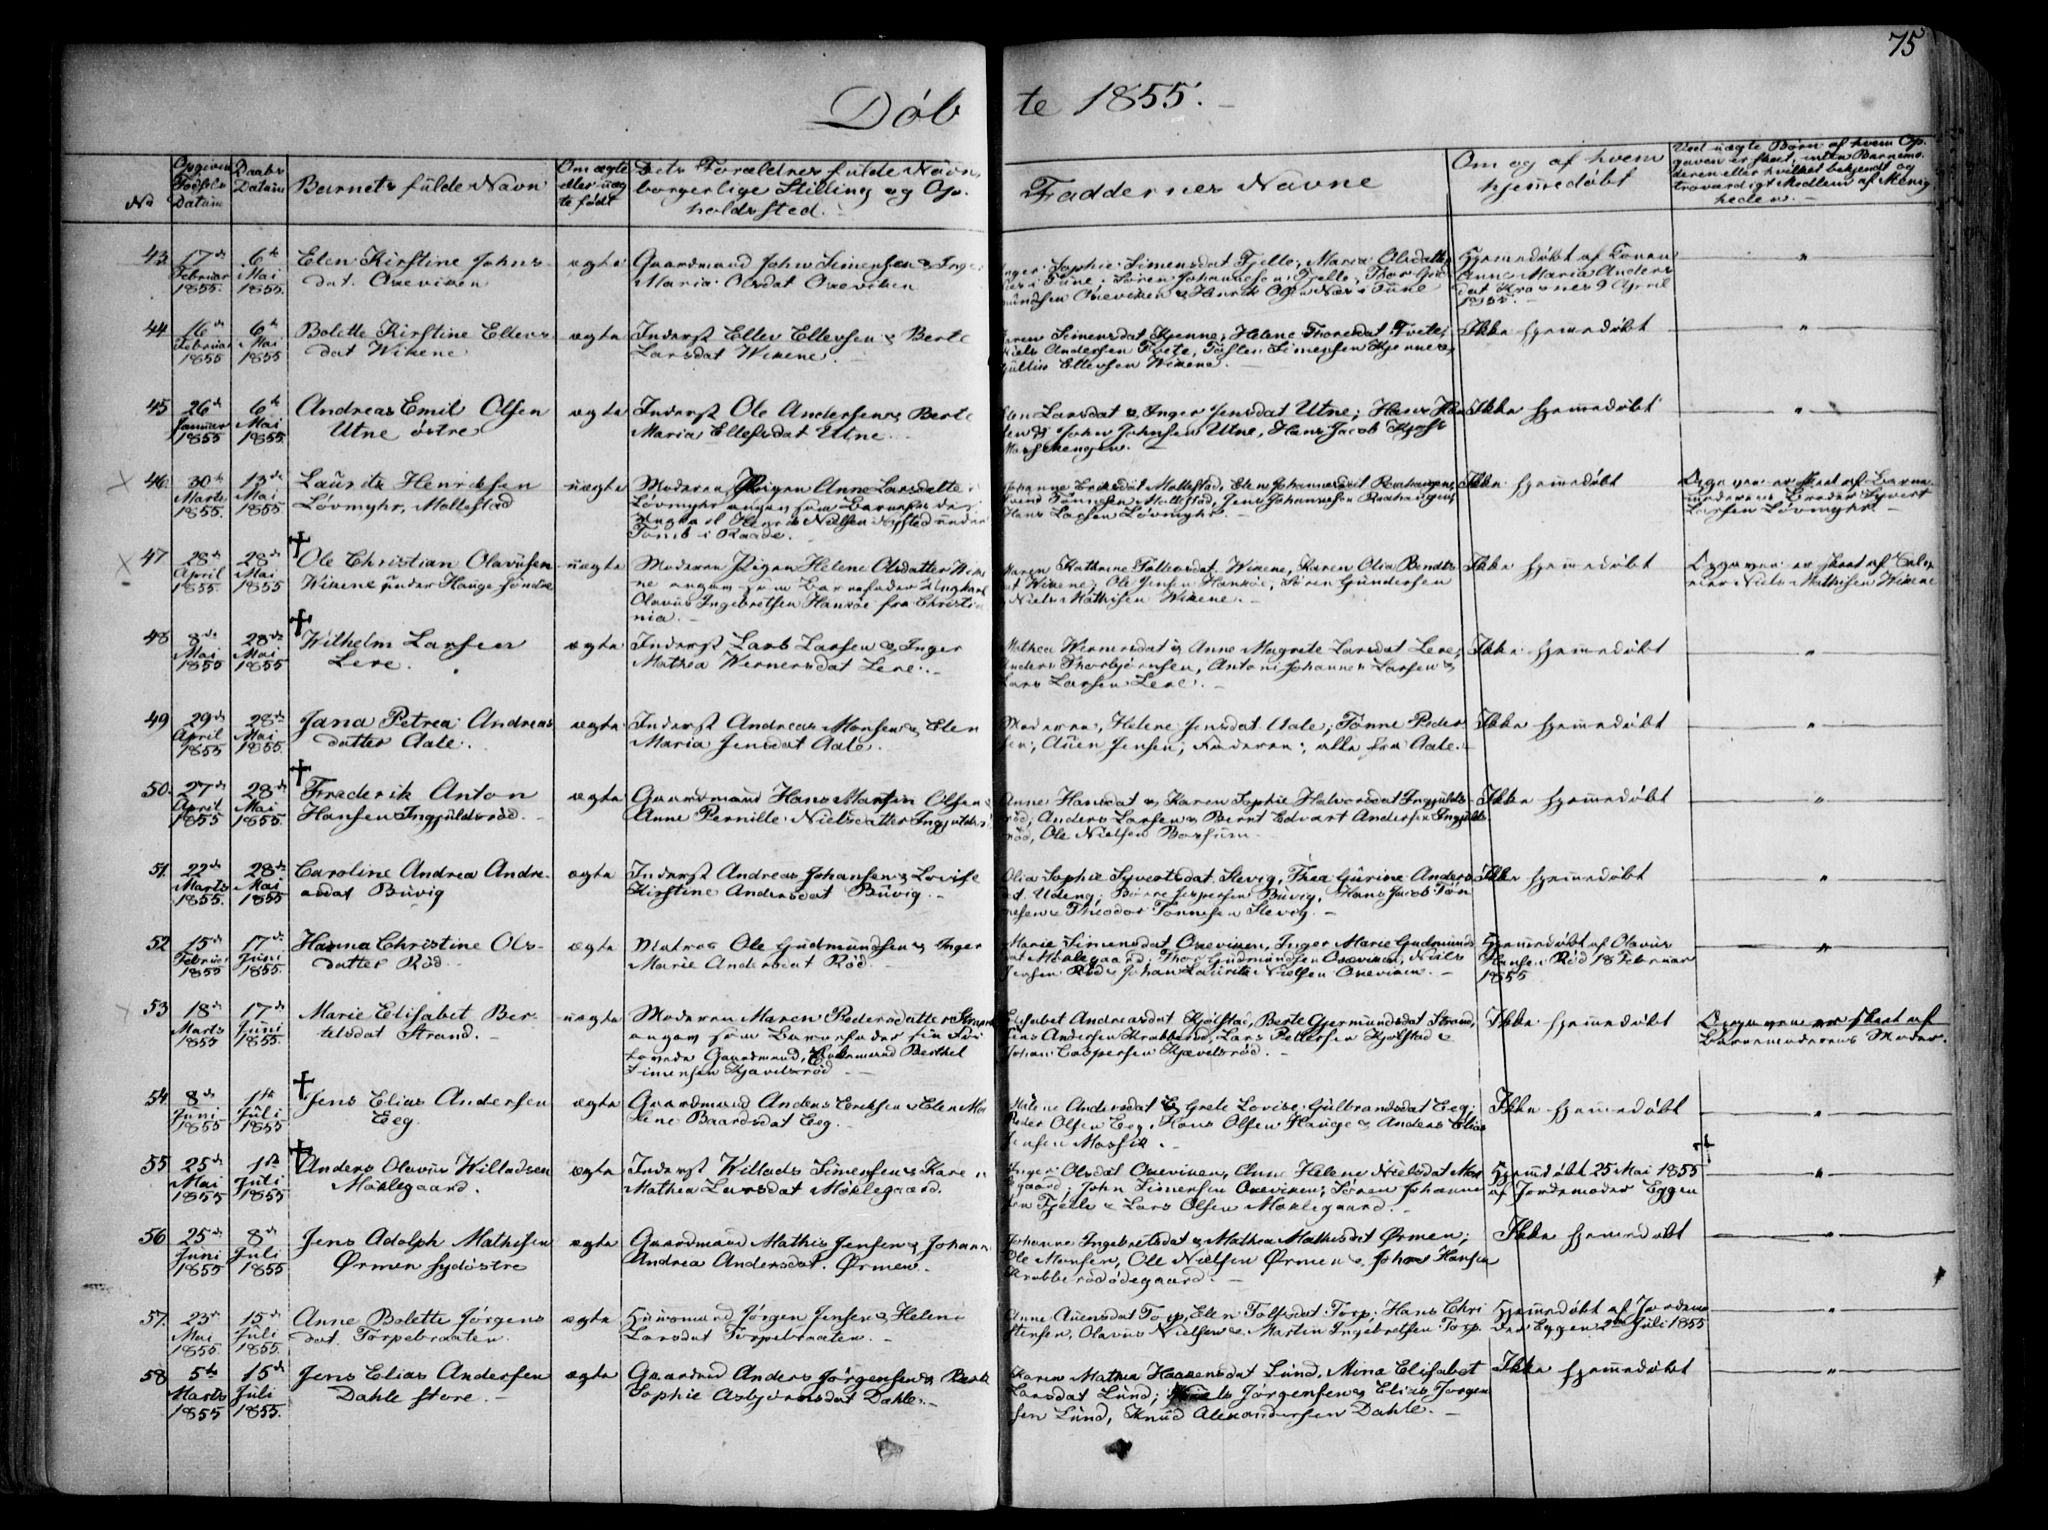 75
Döbte 1855.
No
Opgiven Födsels Datum
Daabs Datum
Barnets fulde Navn
Om ægte eller uægte födt
Dets Forældres fulde Navn, borgerlige Stilling og Opholdssted.
Faddernes Navne
Om og af hvem hjemmedöbt
Ved uægte Börn af hvem Opgaven er skeet, enten Barnemoderen eller hvilket bekjendt og troværdigt Medlem af Menigheden.
43 17de Februar 1855. 6te Mai 1855.
Elen Kirstine Johnsdat. Oxeviken
ægte
Gaardmand John Simensen & Inger
Maria Olsdat Oxeviken
Inger Sophie Simensdat Fjelle, Maria Olsdatter
Næs i Tune, Sören Johannesen Fjelle, Thor Gudmundsen Oxeviken & Henrik Olsen Næs i Tune
Hjemmedöbt af Konen
Anne Maria Andersdat Krosnes 9 April
1855.
"
44 16de Februar 1855 6te Mai 1855
Bolette Kirstine Ellevsdat Wikene
ægte
Inderst Ellev Ellevsen & Berte
Larsdat Wikene.
Karen Simensdat Kjenne, Helene Thoresdat Tvete,
Niels Andersen Tvete, Tosten Simensen Kjenne &
Gullik Ellevsen Wikene.
Ikke hjemmedöbt
"
45 26de Januar 1855 6te Mai 1855.
Andreas Emil Olsen
Utne östre
ægte
Inderst Ole Andersen & Berte
Maria Ellefsdat Utne.
Elen Larsdat & Inger Jensdat Utne; Hans
John Johnsen Utne, Hans Jacob
Ikke hjemmedöbt
"
46. 30te Marts 1855. 13de Mai 1855.
Laurits Henriksen
Lövmyhr, Mallestad
uægte
Moderen Pigen Anne Larsdatter
Lövmyhr angav som Barnefader
Ungkarl Henrik Nielsen Nysted under
Tomb i Raade.
Johanne Eriksdat Mallestad, Elen Johannesdat
Svend Tönnesen Mallestad, Jens Johannesen
Hans Larsen Lövmyhr.
Ikke hjemmedöbt
Opgaven er skeet af Barnemoderens Broder Syvert
Larsen Lövmyhr.
47 28de April 1855. 28de Mai 1855
Ole Christian Olavusen
Wikene under Hauge söndre
uægte
Moderen Pigen Helene Olsdatter Wikene angav som Barnefader Ungkarl
Olavus Ingebretsen Hanköe fra Christiania.
Karen Kathrine Wikene, Karen Olia Berntsdat Wikene, Ole Jensen Hanköe, Sören Gundersen
& Niels Mathisen Wikene.
Ikke hjemmedöbt
Opgaven er skeet af
Niels Mathisen Wikene
48 8de Mai 1855 28de Mai 1855
Wilhelm Larsen
Lere.
ægte
Inderst Lars Larsen & Inger
Mathea Wernersdat Lere.
Mathea Wernersdat & Anne Magrete Larsdat Lere,
Anders Thorbjörnsen, Anton Johannes Larsen &
Lars Larsen Lere.
Ikke hjemmedöbt
"
49 29de April 1855 28de Mai 1855.
Jana Petrea Andreasdatter Aale.
ægte
Inderst Andreas Monsen & Elen
Maria Jensdat Aale.
Moderen, Helene Jensdat Aale; Tönne Pedersen; Auen Jensen; Faderen; alle fra Aale.
Ikke hjemmedöbt
"
50. 27de April 1855 28de Mai 1855.
Frederik Anton
Hansen Ingjuldsröd.
ægte
Gaardmand Hans Martin Olsen &
Anne Pernille Nielsdatter Ingjuldsröd
Anne Hansdat & Karen Sophie Halvorsdat Ingjuldsröd; Anders Larsen & Bernt Edvart Andersen Ingjuldsröd, Ole Nielsen
Ikke hjemmedöbt
"
51. 22de Marts 1855. 28de Mai 1855
Caroline Andrea Andreasdat Buvig
ægte
Inderst Andreas Johansen & Lovise
Kirstine Andersdat Buvig.
Olia Sophie Syvertsdat Slevig, Thea Gurine Andersdat Udeng; Jespersen Buvig, Hans Jacob Tönnesen & Theodor Tönnesen Slevig.
Ikke hjemmedöbt
"
52 15de Februar 1855 17de Juni 1855.
Hanna Christine Olsdatter Röd.
ægte
Matros Ole Gudmundsen & Inger
Marie Andersdat Röd.
Marie Simensdat Oxeviken, Inger Marie Gudmundsdat Möklegaard; Thor Gudmundsen Oxeviken, Niels
Jensen Röd & Johan Laurits Nielsen Oxeviken.
Hjemmedöbt af Olavus
Hansen Röd 18 Februar
1855
"
53 18de Marts 1855 17de Juni 1855
Marie Elisabet Bertelsdat Strand.
uægte
Moderen Maren Pedersdatter Strand
angav som Barnefader sin
Gaardmand, Enkemand Berthel
Simensen Kjævelsröd
Elisabet Andreasdat Kjölstad, Berte Gjermundsdat Strand,
Jens Andersen Krabberöd, Lars Pettersen Kjölstad &
Johan Caspersen Kjævelsröd.
Ikke hjemmedöbt
Opgaven er skeet af
Barnemoderens Moder.
54. 8de Juni 1855 1ste Juli 1855.
Jens Elias Andersen
Eeg.
ægte
Gaardmand Anders Eriksen & Elen Malene Baardsdat Eeg.
Malene Andersdat & Grete Lovise Gulbrandsdat Eeg;
Peder Olsen Eeg, Hans Olsen Hauge & Anders Elias
Jensen
Ikke hjemmedöbt
"
55 25de Mai 1855 1ste Juli 1855
Anders Olavus Willadsen
Möklegaard.
ægte
Inderst Willads Simensen & Karen
Mathea Larsdat Möklegaard.
Inger Olsdat Oxeviken, Anne Helene Nielsdat Möklegaard, John Simensen Oxeviken; Sören Johannesen Fjelle & Lars Olsen Möklegaard.
Hjemmedöbt 25 Mai 1855
af Jordemoder Eggen
"
56 25de Juni 1855 8de Juli 1855
Jens Adolph Mathisen
Ørmen sydöstre
ægte
Gaardmand Mathis Jensen & Johanne
Andrea Andersdat. Ørmen.
Johanne Ingebretsdat & Mathea Mathisdat Ørmen,
Ole Monsen, Ole Nielsen Ørmen & Johan Hansen
Krabberödödegaard.
Ikke hjemmedöbt
"
57. 23de Mai 1855. 15de Juli 1855.
Anne Bolette Jörgensdat Torpebraaten.
ægte
Huusmand Jörgen Jensen & Helene
Larsdat Torpebraaten.
Anne Auensdat Torp, Elen Tolfsdat Torp. Hans Christensen, Olavus Nielsen & Martin Ingebretsen Torp.
Hjemmedöbt af Jordemoder Eggen 2den Juli 1855
"
58 5te Marts 1855 15de Juli 1855.
Jens Elias Andersen
Dahle store.
ægte
Gaardmd Anders Jörgensen & Berte
Sophie Asbjörnsdat Dahle.
Karen Mathea Haakensdat Lund, Mina Elisabet
Larsdat Lund; Niels Jörgensen & Elias Jörgensen Lund, Knud Alexandersen Dahle.
Ikke hjemmedöbt
"